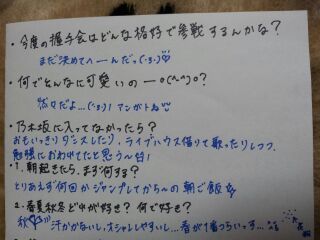 ・今度の握手会はどんな格好で参戦するんかな?
まだ決めてへーんだっ(·3·)♡
・何でそんなに可愛いの—o(^^)o?
だよ…(·3·)! アンガトね
・乃木坂に入ってなかったら?
おもいっきりダンスしたり、ライブハウス借りて歌ったりしつつ、
勉強におわれてたと思う〜台!
・1.朝起きたら、まず何する?
とりあえず何回かジャンプしてから〜の朝ご飯☆
2.春夏秋冬どれが好き? 何で好き?
秋 汗かかないし、オシャレしやすいし…春が1番っちぃす…